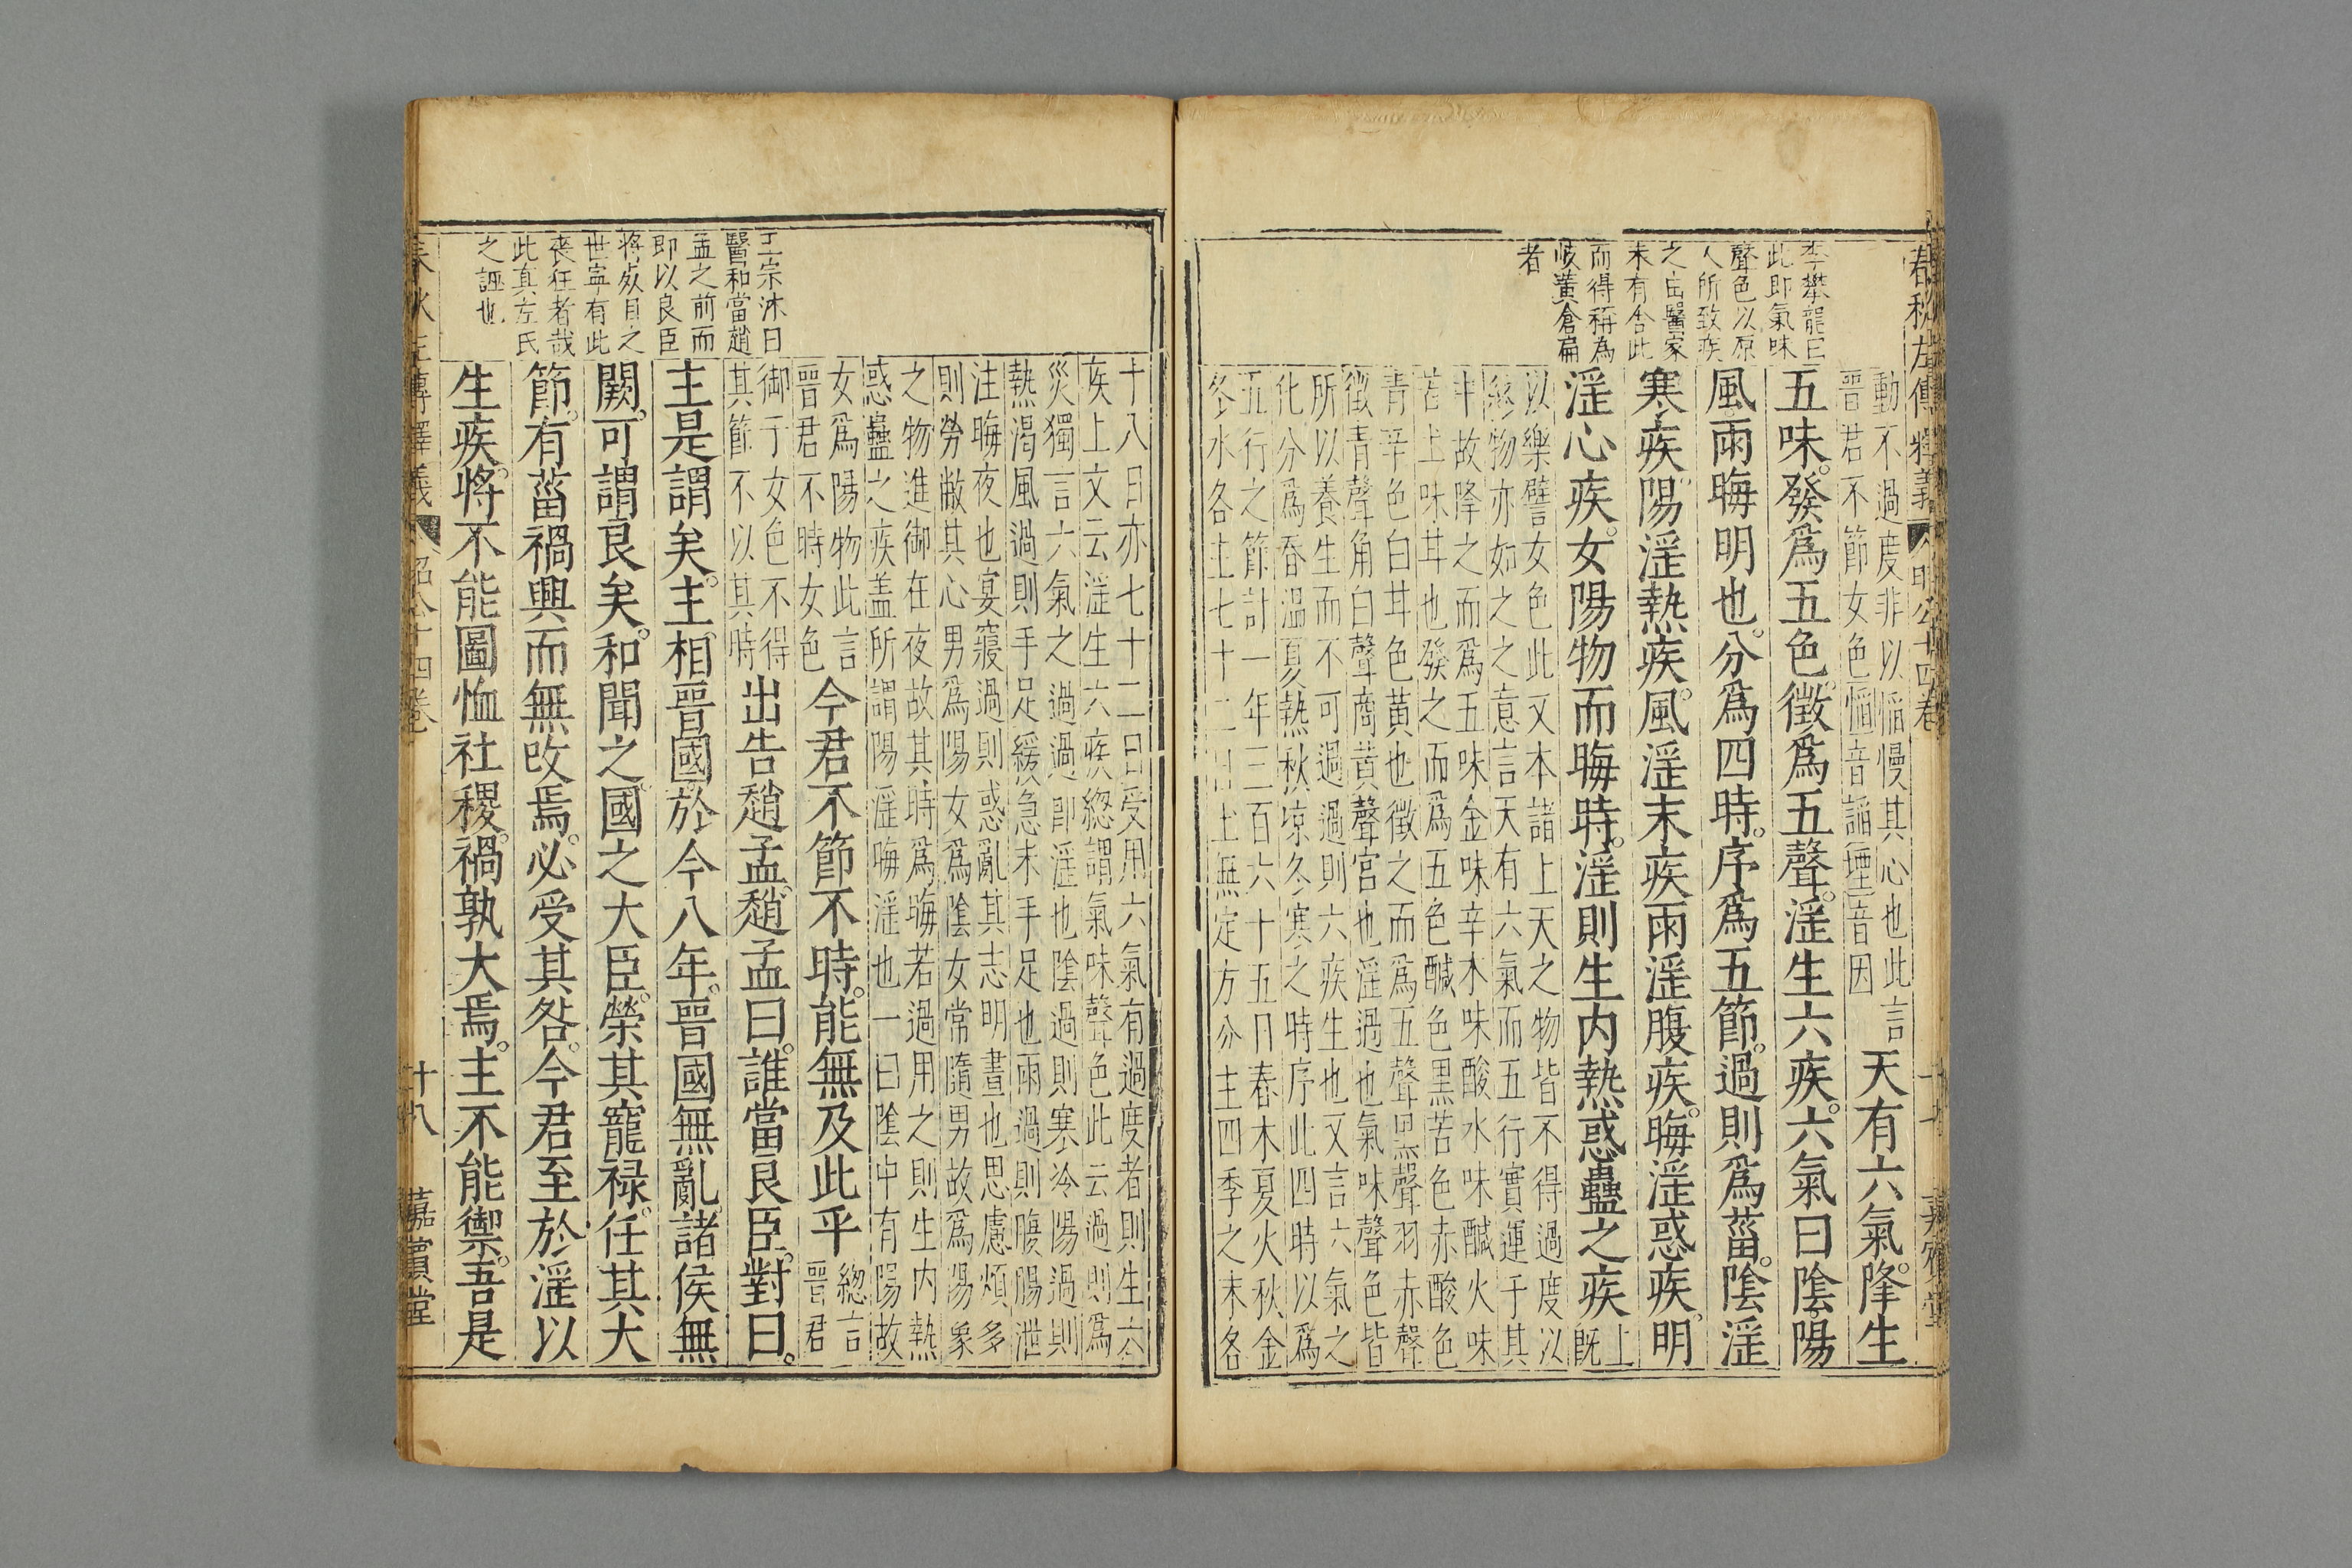 春秋左傳釋義
昭公十四卷
嘉賓堂
李攀龍曰
此即氣味
聲色以原
人所致疾
之由醫家
未有舍此
而得稱為
岐黃倉扁
者
動不過度非以慆慢其心也此言
晉君不節女色慆音謟堙音因
天有六氣。降生
五味。發爲五色。徵爲五聲。淫生六疾。六氣曰陰。陽
風雨晦明也。分爲四時。序爲五節。過則爲菑。陰淫
寒疾。陽淫熱疾。風淫末疾。雨淫腹疾。晦淫惑疾。明
淫心疾。女陽物而晦時。淫則生内熱惑蠱之疾
上
既
以樂譬女色此又本諸上天之物皆不得過度以
終物亦如之之意言天有六氣而五行實運于其
中故降之而爲五味金味辛木味酸水味醎火味
苦土味甘也發之而爲五色醎色黑苦色赤酸色
青辛色白甘色黃也徵之而爲五聲黑聲羽赤聲
徵青聲角白聲商黃聲宮也淫過也氣味聲色皆
所以養生而不可過過則六疾生也又言六氣之
化分爲春溫夏熱秋凉冬寒之時序此四時以爲
五行之節計一年三百六十五日春木夏火秋金
冬水各主七十二日土無定方分主四季之末各
十八日亦七十二日受用六氣有過度者則生六
疾上文云淫生六疾緫謂氣味聲色此云過則爲
災獨言六氣之過過即淫也陰過則寒冷陽過則
熱渴風過則手足緩急末手足也雨過則腹腸泄
注晦夜也宴寢過則惑亂其志明晝也思慮煩多
則勞敝其心男爲陽女爲陰女常隨男故爲陽象
之物進御在夜故其時爲晦若過用之則生内熱
惑蠱之疾盖所謂陽淫晦淫也一曰陰中有陽故
女爲陽物此言
晉君不時女色
今君不節不時。能無及此乎
緫言
晉君
御于女色不得
其節不以其時
出告趙孟。趙孟曰。誰當良臣。對曰。
主是謂矣。主相晉國。於今八年。晉國無亂。諸侯無
闕。可謂良矣。和聞之。國之大臣。榮其寵祿。任其大
節。有菑禍興而無改焉。必受其咎。今君至於淫以
生疾。將不能圖恤社稷。禍孰大焉。主不能禦。吾是
王宗沐曰
醫和當趙
孟之前而
即以良臣
將死目之
世寧有此
喪狂者哉
此真左氏
之誣也
春秋左傳釋義
昭公十四卷
十八
嘉賓堂